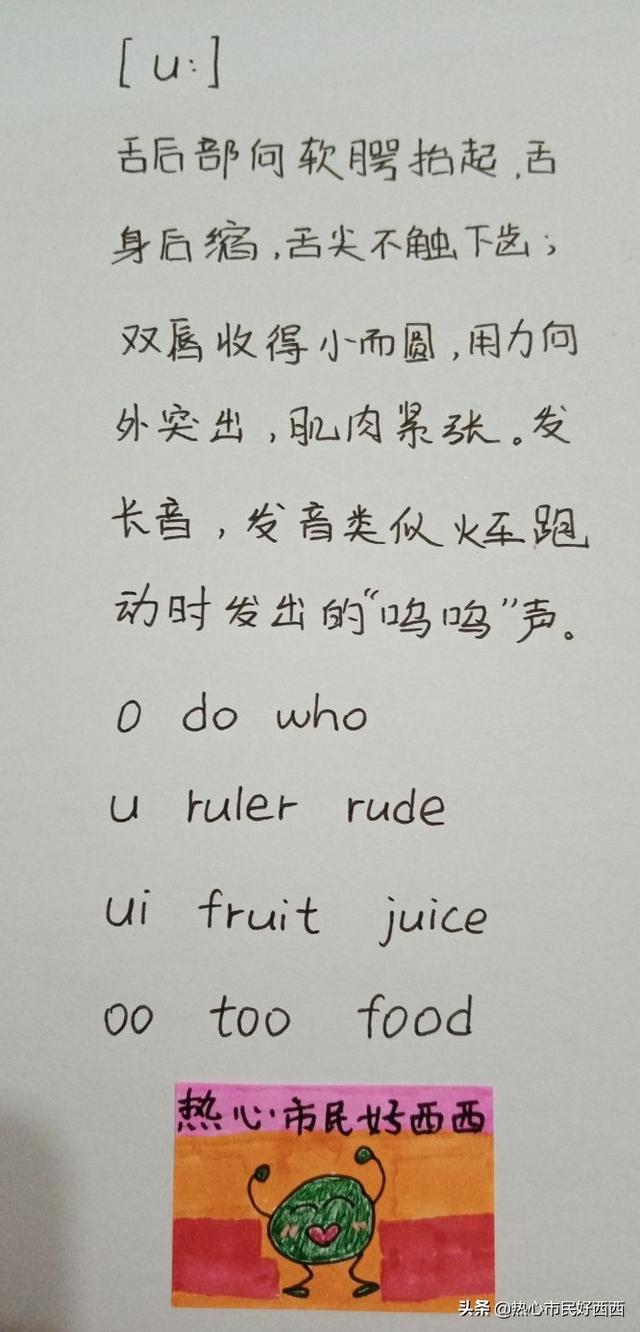 [u:]
舌后部向软腭抬起,舌
身后缩,舌尖不触下齿;
双唇收得小而圆,用力向
外突出,肌肉紧张。发
长音,发音类似火车跑
动时发出的“呜呜”声。
o do who
u ruler rude
ui fruit juice
oo too food
热心市民好西西
头条 @热心市民好西西